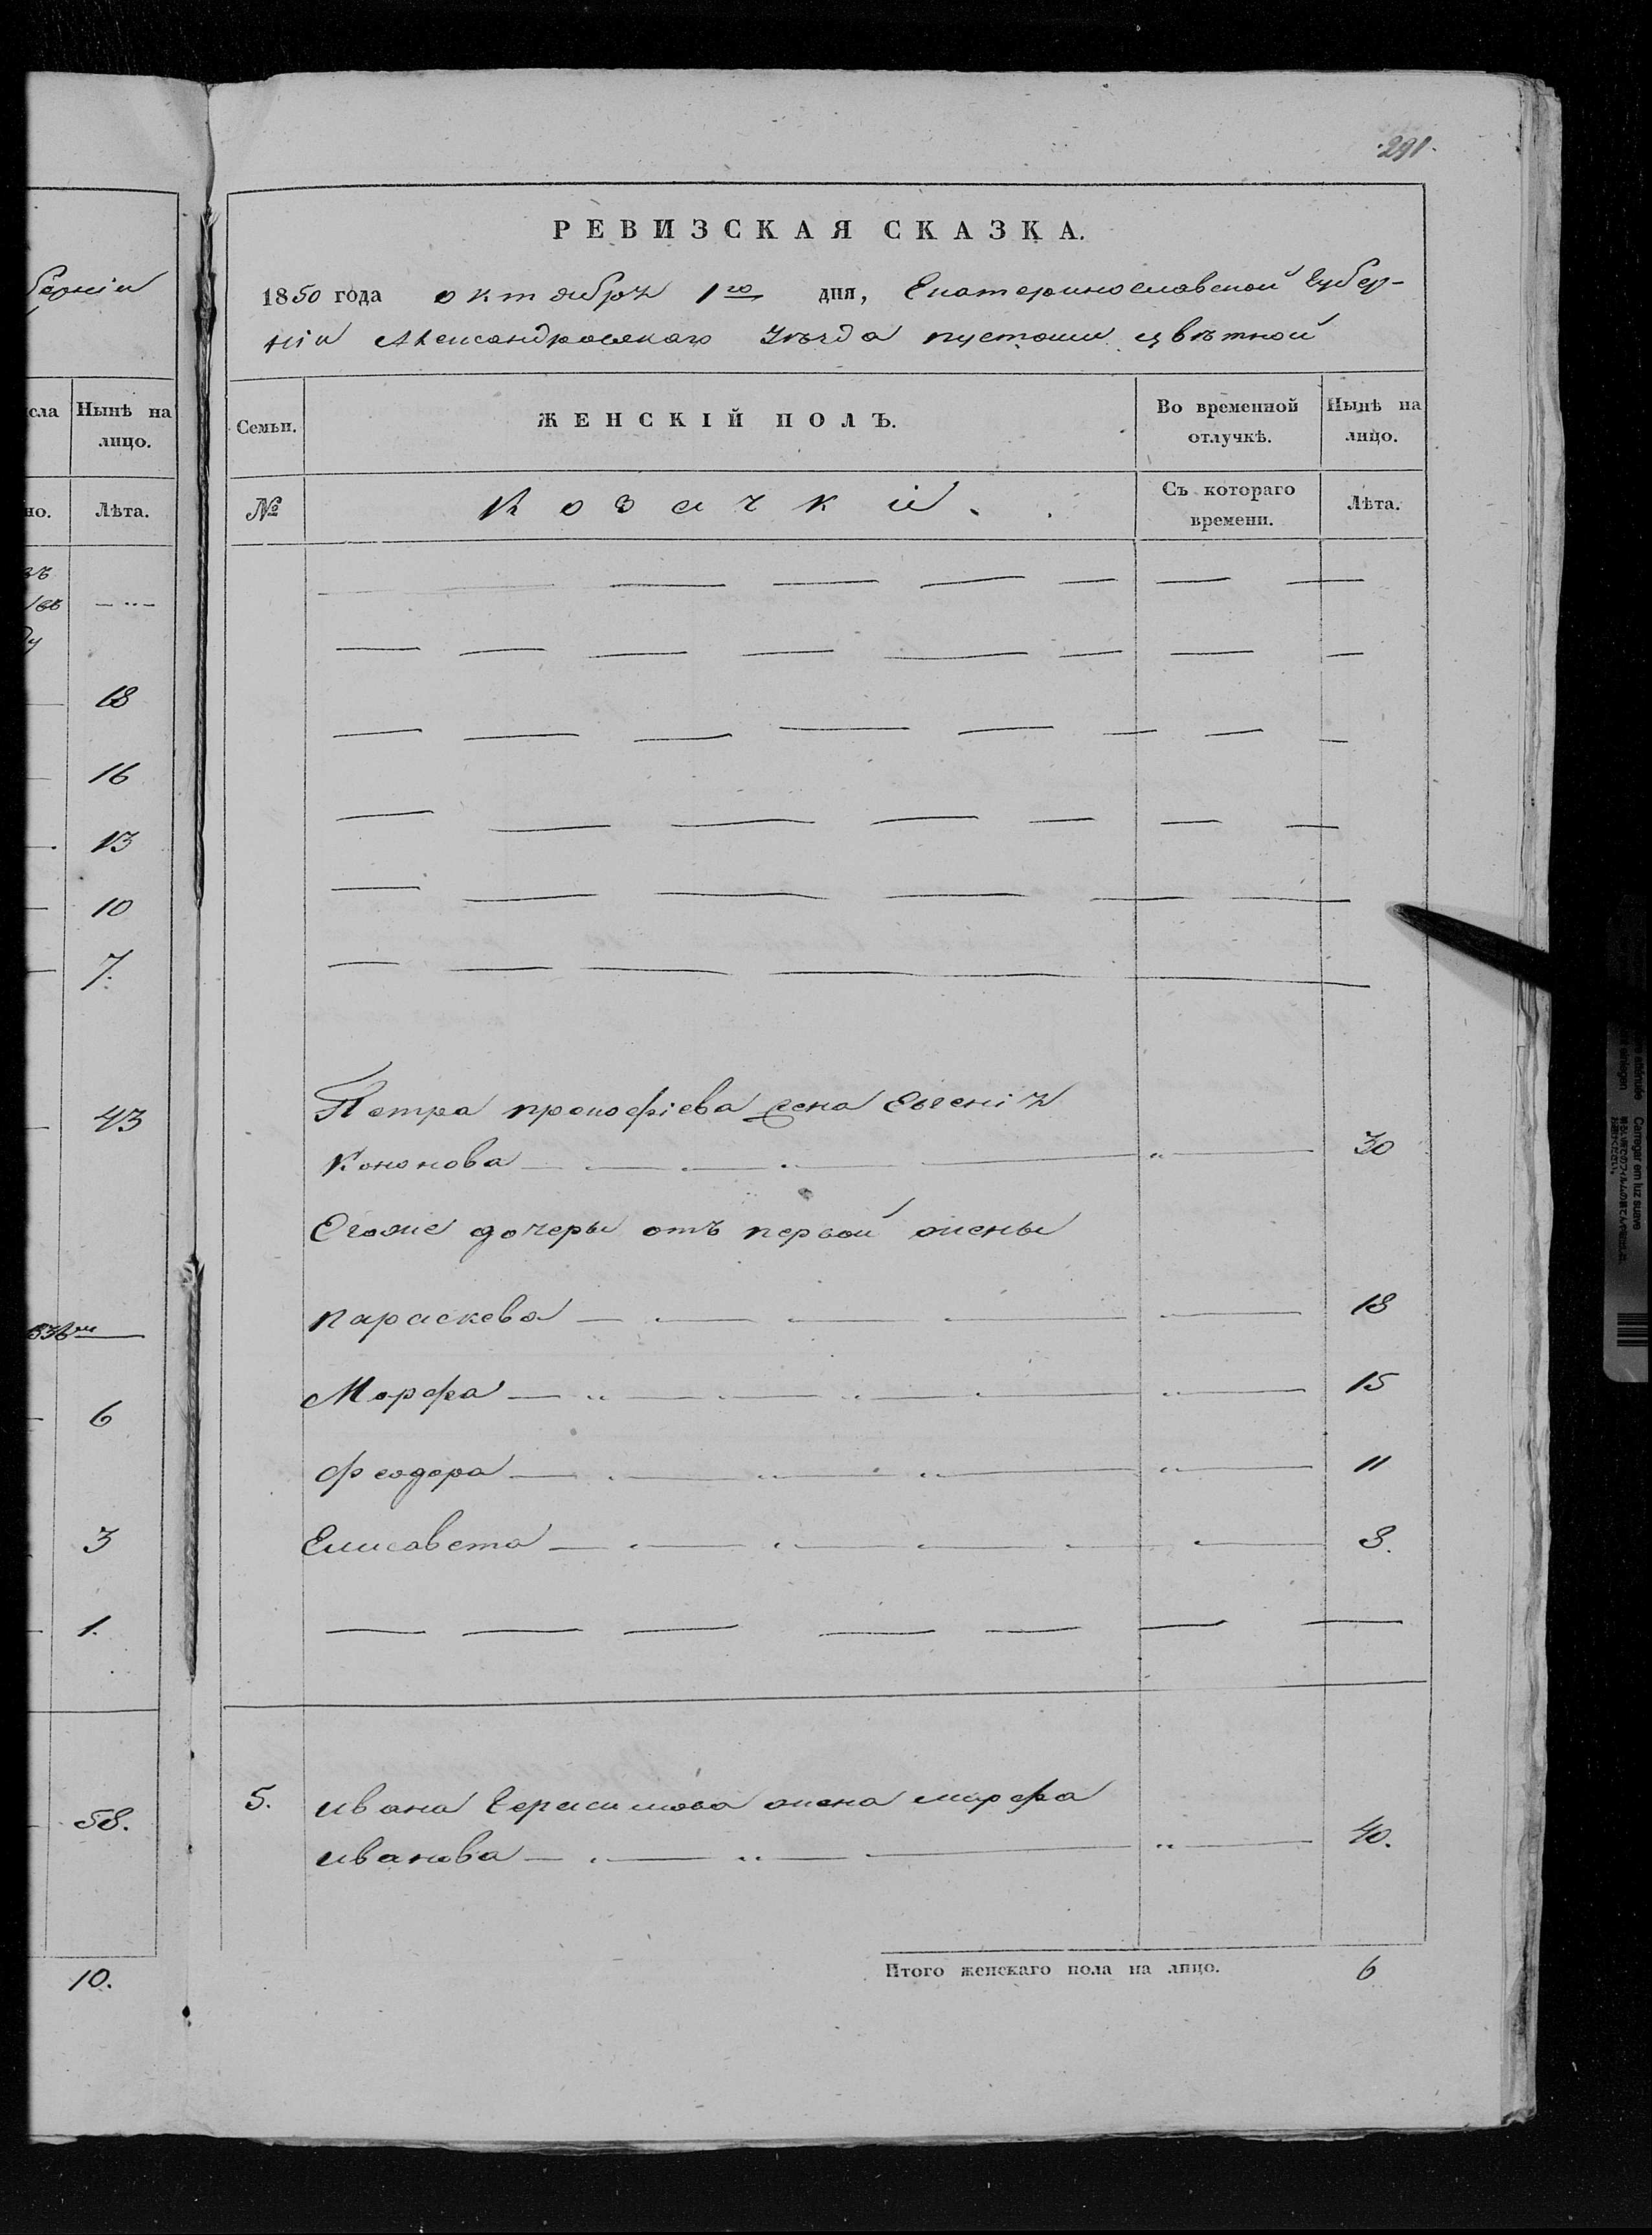 291
РЕВИЗСКАЯ СКАЗКА.
1850 года октября 1го дня, Екатеринославской Губер-
ніи Александровскаго Уѣзда пустоши цвѣтной
Семьи. ЖЕНСКІЙ ПОЛЪ. Во временной отлучкѣ. Нынѣ на лицо.
№ Козачки. Съ котораго времени. Лѣта.
Петра прокофіева жена Евгенія
Кононова 30
Егоже дочеры отъ первой жены
параскева 18
Марфа 15
феодора 11
Елисавета 8.
5. ивана Герасимова жена марфа
иванова 40.
Итого женскаго пола на лицо. 6
берніи
сла Нынѣ на лицо.
но. Лѣта.
18
16
13
10
7.
43
6
3
1.
58.
10.